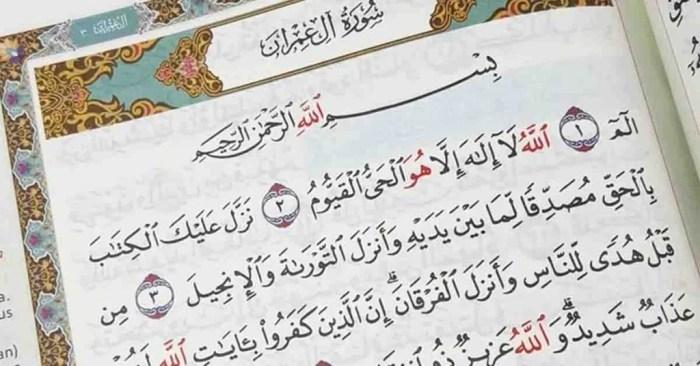 آل عمران ٣
سُورَةُ آلِ عِمْرَانَ
بِسْمِ ٱللَّهِ ٱلرَّحْمَٰنِ ٱلرَّحِيمِ
الٓمٓ ١ ٱللَّهُ لَآ إِلَٰهَ إِلَّا هُوَ ٱلْحَىُّ ٱلْقَيُّومُ ٢ نَزَّلَ عَلَيْكَ ٱلْكِتَٰبَ
بِٱلْحَقِّ مُصَدِّقًا لِّمَا بَيْنَ يَدَيْهِ وَأَنزَلَ ٱلتَّوْرَىٰةَ وَٱلْإِنجِيلَ ٣ مِن
قَبْلُ هُدًى لِّلنَّاسِ وَأَنزَلَ ٱلْفُرْقَانَ ۗ إِنَّ ٱلَّذِينَ كَفَرُوا۟ بِـَٔايَٰتِ ٱللَّهِ لَهُمْ
عَذَابٌ شَدِيدٌ ۗ وَٱللَّهُ عَزِيزٌ ذُو
a.
us
an)